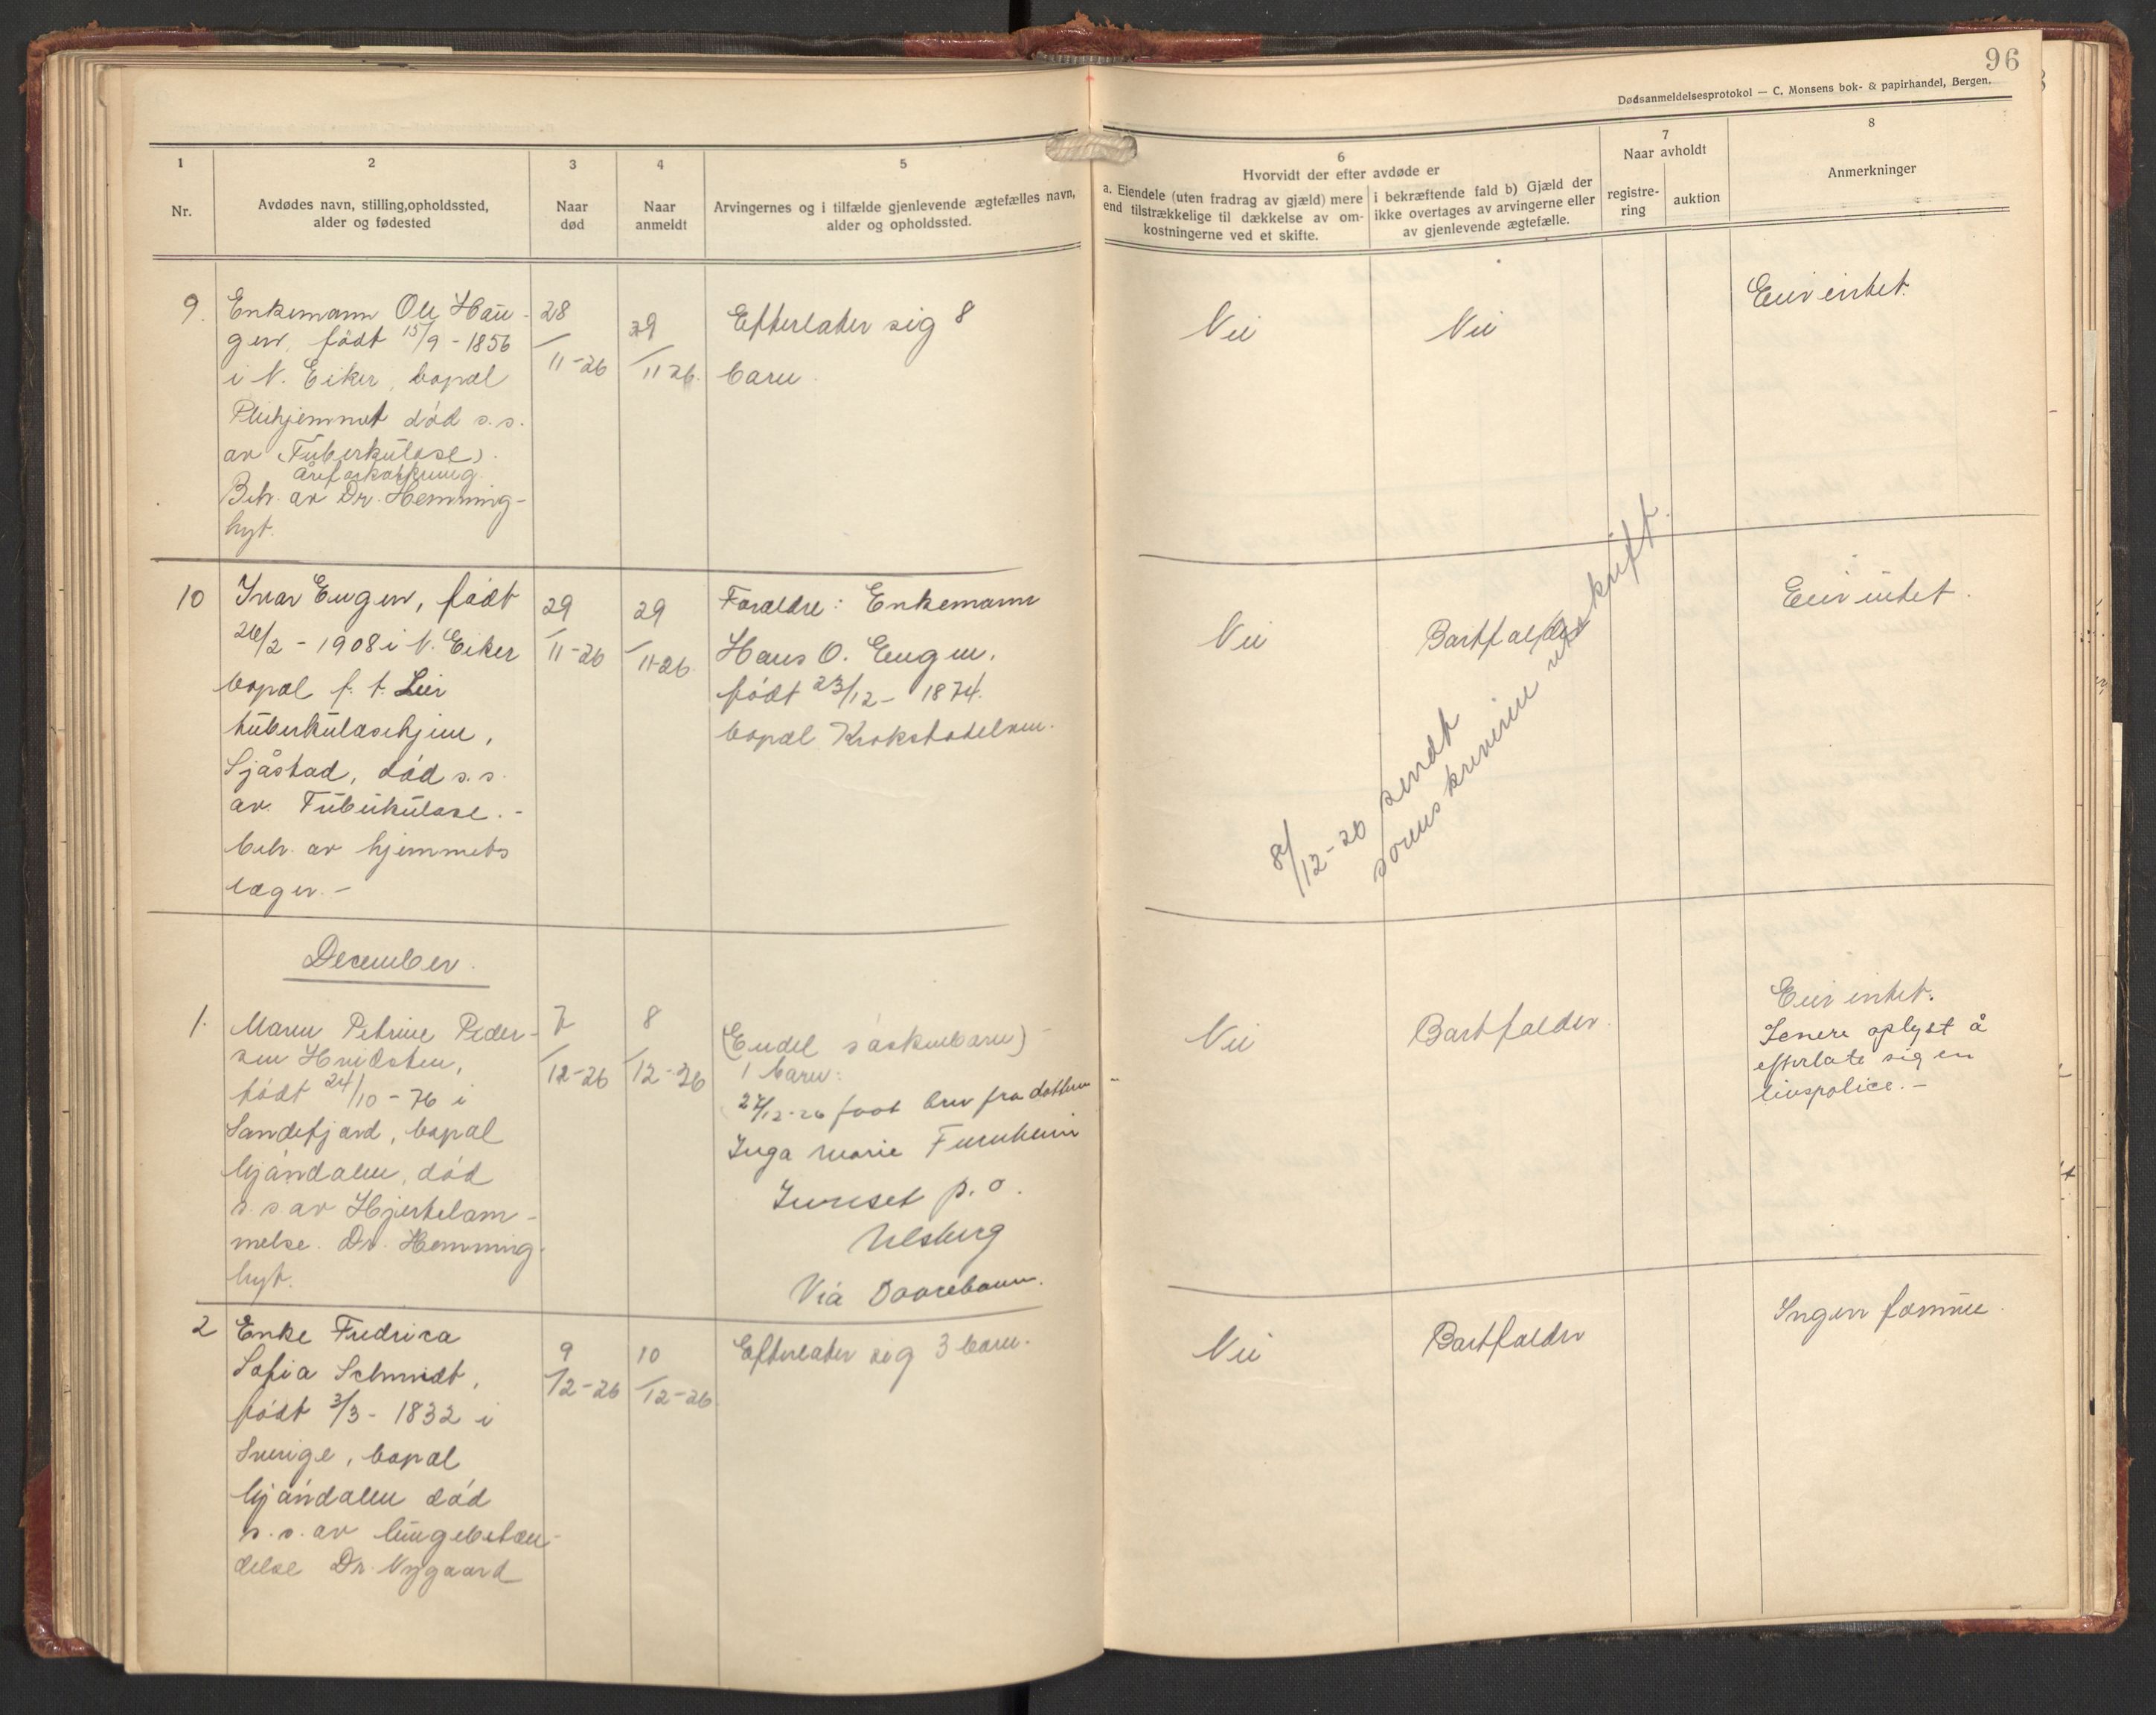 96
Dødsanmeldelsesprotokol — C. Monsens bok- & papirhandel, Bergen.
1
Nr.
2
Avdødes navn, stilling, opholdssted,
alder og fødested
3
Naar
død
4
Naar
anmeldt
5
Arvingernes og i tilfælde gjenlevende ægtefælles navn,
alder og opholdssted.
6
Hvorvidt der efter avdøde er
a. Eiendele (uten fradrag av gjæld) mere
end tilstrækkelige til dækkelse av om-
kostningerne ved et skifte.
i bekræftende fald b) Gjæld der
ikke overtages av arvingerne eller
av gjenlevende ægtefælle.
7
Naar avholdt
registre-
ring
auktion
8
Anmerkninger
9.
Enkemann Ole Hau-
gen, født 15/9-1856
i N. Eiker, bopæl
Pleihjemmet død s.s.
av Tuberkulose).
Åreforkalkning
Beh. av Dr. Hemming-
hyt.
28
/11-26
29
/11 26.
Efterlater sig 8
barn.
Nei
Nei
Eier intet.
10
Ivar Eugen, født
26/2-1908 i N. Eiker
bopæl f. t. Lier
tuberkulosehjem,
Sjåstad, død s.s.
av Tuberkulose.-
beh. av hjemmets
læger.-
29
/11-26
29
/11-26.
Forældre: Enkemann
Hans O. Eugen,
født 23/12-1874.
bopæl Krokstadelven.
Nei
Bortfalder
Eier intet.
8/12-26 sendt
sorenskriveren utskrift.
December.
1.
Maren Petrine Peder-
sen Hvidsten,
født 24/10-76 i
Sandefjord, bopæl
Mjøndalen, død
s.s. av Hjertelam-
melse. Dr. Hemming-
hyt.
7
/12-26
8
/12-26
(Endel søskenbarn)
1 barn:
27/12-26 faat brev fra datteren
Inga Marie
p.o.
Ulsberg
Via
Nei
Bortfalder.
Eier intet.
Senere oplyst å
efterlate sig en
livspolice.-
2
Enke Fredrica
Sofia Schmidt,
født 3/3-1832 i
Sverige, bopæl
Mjøndalen død
s.s. av lungebetæn-
delse Dr. Nygaard
9
/12-26
10
/12-26
Efterlater sig 3 barn.
Nei
Bortfalder
Ingen formue.